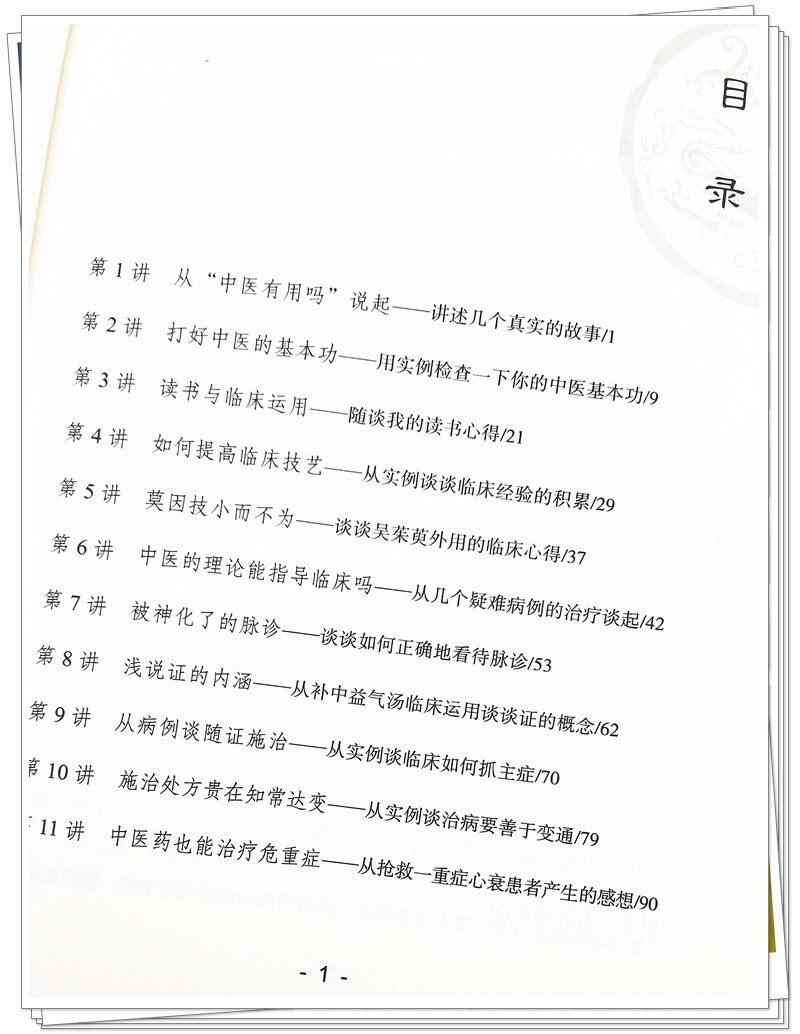 目
录
第 1 讲 从“中医有用吗”说起——讲述几个真实的故事/1
第 2 讲 打好中医的基本功——用实例检查一下你的中医基本功/9
第 3 讲 读书与临床运用——随谈我的读书心得/21
第 4 讲 如何提高临床技艺——从实例谈谈临床经验的积累/29
第 5 讲 莫因技小而不为——谈谈吴茱萸外用的临床心得/37
第 6 讲 中医的理论能指导临床吗——从几个疑难病例的治疗谈起/42
第 7 讲 被神化了的脉诊——谈谈如何正确地看待脉诊/53
第 8 讲 浅说证的内涵——从补中益气汤临床运用谈谈证的概念/62
第 9 讲 从病例谈随证施治——从实例谈临床如何抓主症/70
第 10 讲 施治处方贵在知常达变——从实例谈治病要善于变通/79
11 讲 中医药也能治疗危重症——从抢救一重症心衰患者产生的感想/90
- 1 -